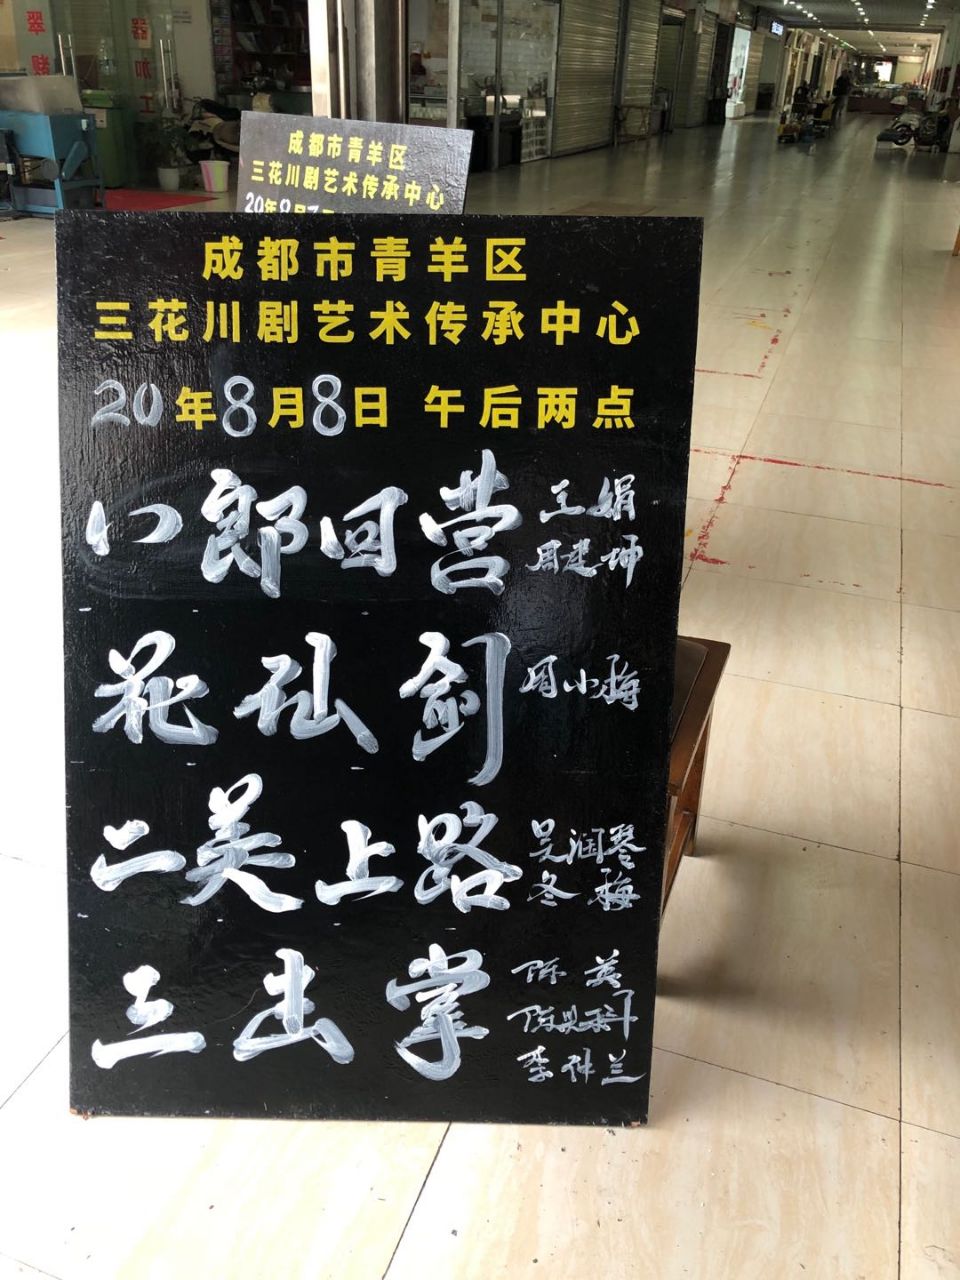 翠
器
加
成都市青羊区
三花川剧艺术传承中心
20年8月7日
成都市青羊区
三花川剧艺术传承中心
20年8月8日 午后两点
八郎回营 王娟
周建坤
花仙剑 周小梅
二美上路 吴润琴
冬梅
三击掌 陈英
李仲兰